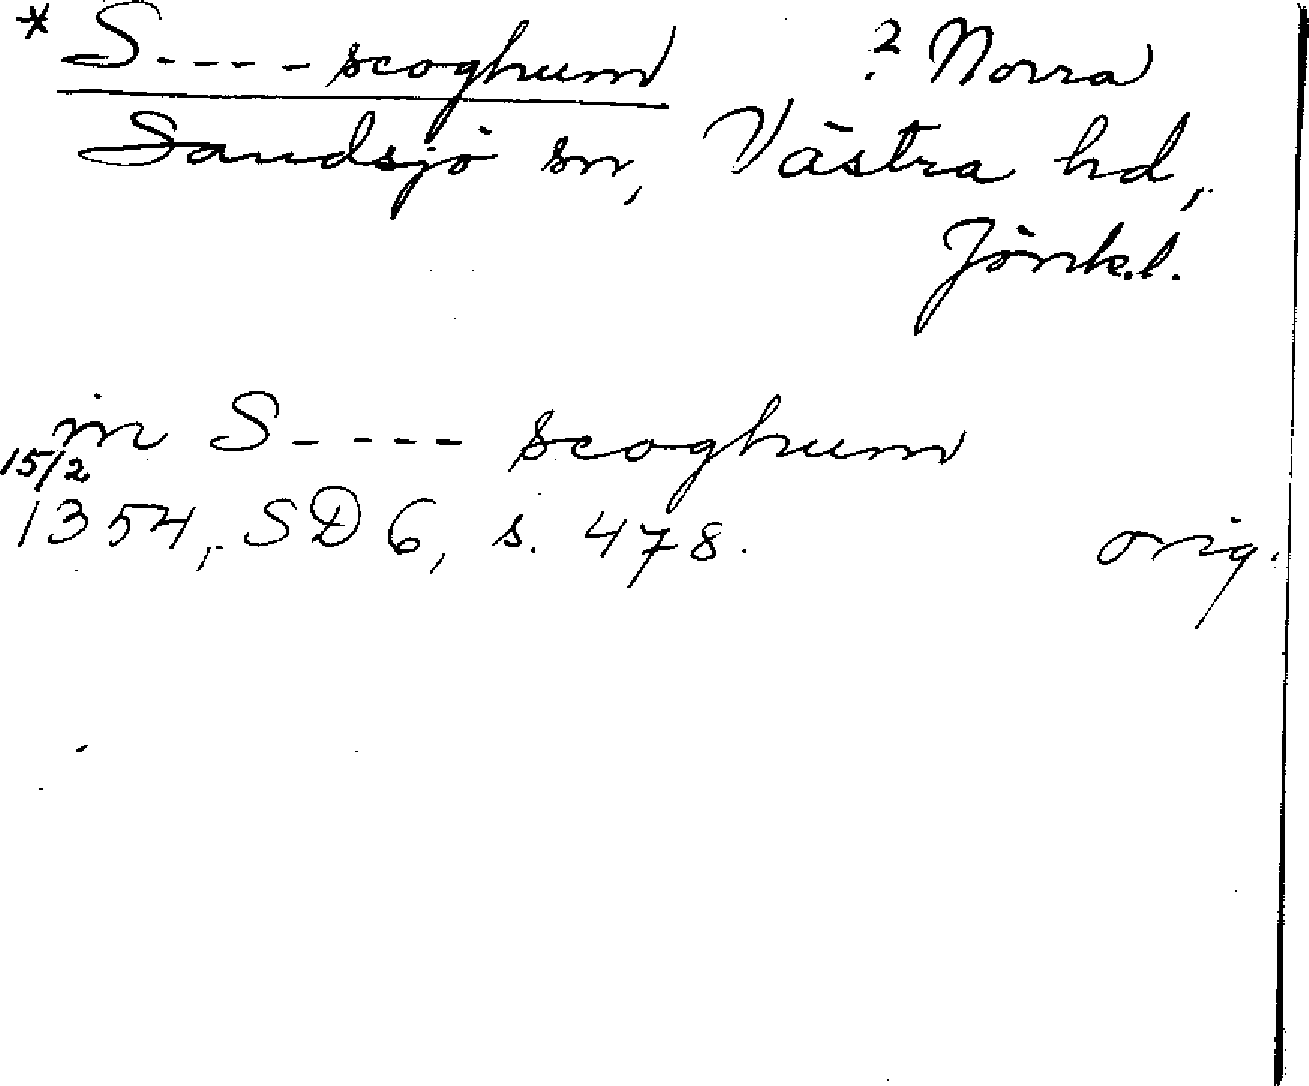 * S----scoghum ? Norra
Sandsjö sn, Västra hd,
Jönk.l.
in S---- scoghum
15/2
1354, SD 6, s. 478. orig.